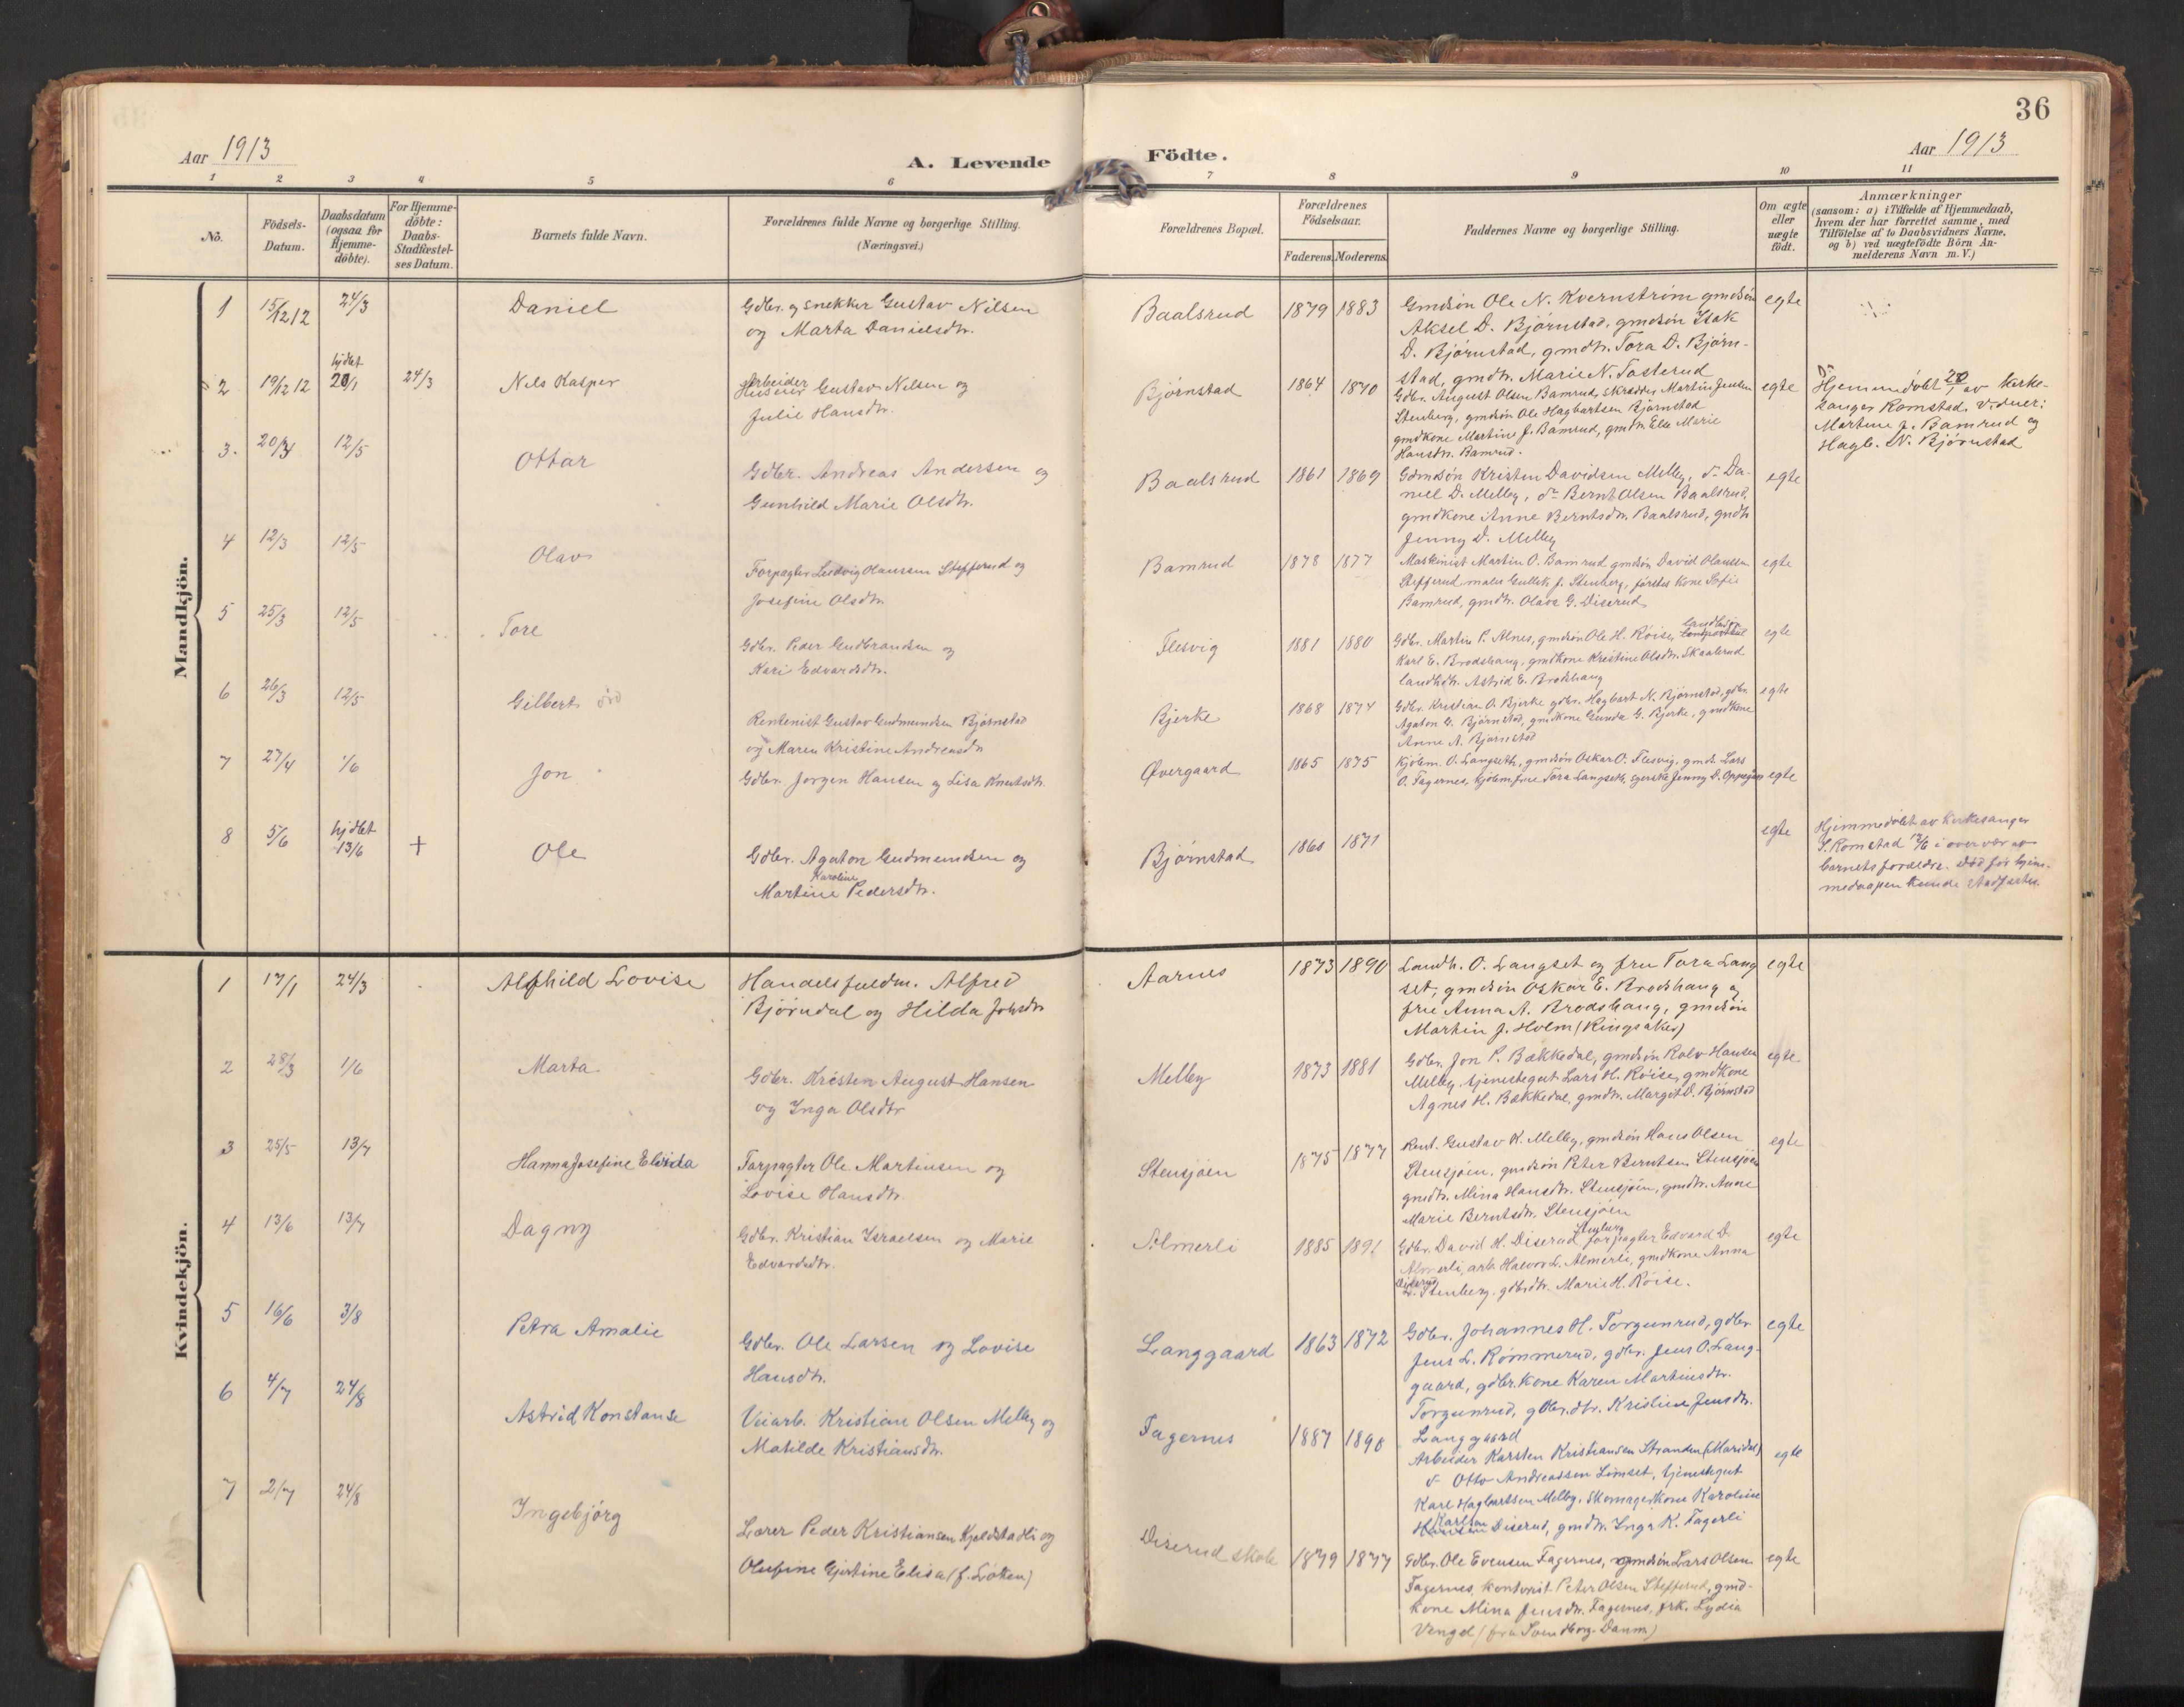 36
Aar 1913
A. Levende Födte.
Aar 1913
1 2 3 4 5 6 7 8 9 10 11
No.
Födsels-Datum.
Daabsdatum (ogsaa for Hjemme-döbte).
For Hjemme-döbte: Daabs-Stadfæstel-ses Datum.
Barnets fulde Navn.
Forældrenes fulde Navne og borgerlige Stilling.
(Næringsvei.)
Forældrenes Bopæl.
Forældrenes Födselsaar.
Faderens. Moderens.
Faddernes Navne og borgerlige Stilling.
Om ægte eller uægte födt.
Anmærkninger
(saasom: a) i Tilfælde af Hjemmedaab,
hvem der har forrettet samme, med
Tilföielse af to Daabsvidners Navne,
og b) ved uægtefödte Börn An-
melderens Navn m. V.)
Mandkjön.
1 15/12 12 24/3 Daniel
Gdbr. og snekker Gustav Nilsen
og Marta Danielsdtr.
Baalsrud 1879 1883
Gmdsön Ole N. Kvernström gmdsön
Aksel D. Björnstad, gmdsön Isak
D. Björnstad, gmdtr. Tora D. Björn-
stad, gmdtr. Marie N. Fosterud
egte
2 19/12 12 hjdbt 20/1 24/3 Nils Kasper
Arbeider
Huseier Gustav Nilsen og
Julie Hansdtr.
Björnstad 1864 1870
Gdbr. August Olsen Bamrud, skrædder Martin Jensen
Stenberg, gmdsön Ole Hagbartsen Björnstad
gmdkone Martine J. Bamrud, gmdtr. Elle Marie
Hansdtr. Bamrud.
egte
Hjemmedöbt 20/1 av kirke-
sanger Romstad. Vidner:
Martine J. Bamrud og
Hagb. N. Björnstad
3. 20/3 12/5 Ottar
Gdbr. Andreas Andersen og
Gunhild Marie Olsdtr.
Baalsrud 1861 1869
Gdmdsön Kristen Davidsen Melby, do Da-
niel D. Melby, do Bernt Olsen Baalsrud,
gmdkone Anne Berntsdtr. Baalsrud, gmdtr
Jenny D. Melby
egte
4 12/3 12/5 Olav
Forpagter Ludvig Olaussen Stefferud og
Josefine Olsdtr.
Bamrud 1878 1877
Maskinist Martin O. Bamrud gmdsön David Olaussen
Stefferud, maler Gullek J. Stenberg, försters kone Sofie
Bamrud, gmdtr. Olava G. Diserud
egte
5 25/3 12/5 Tore
Gdbr. Peder Gudbrandsen og
Kari Edvardsdtr.
Flesvig 1881 1880
Gdbr. Martin P. Alnes, gmdsön Ole H. Röise, landhsön
Karl E. Brodshaug, gmdkone Kristine Olsdtr. Skaalerud
landhdtr. Astrid E. Brodshaug
egte
6 26/3 12/5 Gilbert död
Rentenist Gustav Gudmundsen Björnstad
og Maren Kristine Andreasdtr
Bjerke 1868 1874
Gdbr. Kristian O. Bjerke gdbr. Hagbart N. Björnstad, gdbr.
Agaton G. Björnstad, gmdkone Gunda G. Bjerke, gmdkone
Anne A. Björnstad
egte
7 27/4 1/6 Jon
Gdbr. Jorgen Hansen og Lisa Knutsdtr.
Övergaard 1865 1875
Kjöbm. O. Langseth, gmdsön Oskar O. Flesvig, gmds. Lars
O. Fagernes, kjöbm.frue Tora Langseth, syerske Jenny D. Oppegaard
egte
8 5/6 hjdbt 13/6 + Ole
Gdbr. Agaton Gudmundsen og
Karoline
Martine Pedersdtr.
Björnstad 1868 1871
egte
Hjemmedöbt av kirkesanger
S. Romstad 13/6 i overvær av
barnets foreldre. Död för hjem-
medaapen kunde stadfestes.
Kvindekjön.
1 17/1 24/3 Alfhild Lovise
Handelsfuldm. Alfred
Björndal og Hilda Johsdtr
Aarnes 1873 1890
Landh. O. Langset og fru Tora Lang
set, gmdsön Oskar E. Brodshaug og
frue Anna A. Brodshaug, gmdsön
Martin J. Holm (Ringsaker)
egte
2 28/3 1/6 Marta
Gdbr. Kristen August Hansen
og Inga Olsdtr
Melby 1873 1881
Gdbr. Jon P. Bækkedal, gmdsön Rolv Hansen
Melby, tjenestegut Lars H. Röise, gmdkone
Agnes H. Bækkedal, gmdtr. Margit D. Björnstad
egte
3 25/5 13/7 Hanna Josefine Elvida
Forpagter Ole Martinsen og
Lovise Hansdtr.
Stensjöen 1875 1877
Rent. Gustav K. Melby, gmdsön Hans Olsen
Stensjöen, gmdsön Peter Berntsen Stensjöen
gmdtr. Mina Hansdtr. Stensjöen, gmdtr. Anne
Marie Berntsdtr. Stensjöen
egte
4 13/6 13/7 Dagny
Gdbr. Kristian Israelsen og Marie
Edvardsdtr.
Almerli 1885 1891
Stenberg
Gdbr. David H. Diserud, forpagter Edvard D.
Almerli, arb. Halvor L. Almerli, gmdkone Anna
Diserud
D. Stenberg, gdbrdtr. Marie H. Röise.
egte
5 16/6 3/8 Petra Amalie
Gdbr. Ole Larsen og Lovise
Hansdtr.
Langgaard 1863 1872
Gdbr. Johannes H. Torgunrud, gdbr
Jens L. Römmerud, gdbr. Jens O. Lang-
gaard, gdbr. kone Karen Martinsdtr.
Torgunrud, gdbr.dtr. Kristine Jensdtr.
Langgaard
egte
6 4/7 24/8 Astrid Konstanse
Veiarb. Kristian Olsen Melby og
Matilde Kristiansdtr.
Fagernes 1887 1890
Arbeider Karsten Kristiansen Stranden (Maridal)
do Otto Andreassen Limset, tjenestegut
Karl Hagbartsen Melby, Skomagerkone Karoline
Karlsen
Hansen Diserud, gmdtr. Inga K. Fagerli
egte
7 2/7 24/8 Ingebjörg
Lærer Peder Kristiansen Kjeldstadli og
Olufine Gjertine Elisa (f. Löken)
Diserud skole 1879 1877
Gdbr. Ole Evensen Fagernes, gmdsön Lars Olsen
Fagernes, kontorist Peter Olsen Stefferud, gmd-
kone Mina Jensdtr. Fagernes, frk. Lydia
Vengel (fra Svendborg-Danm)
egte